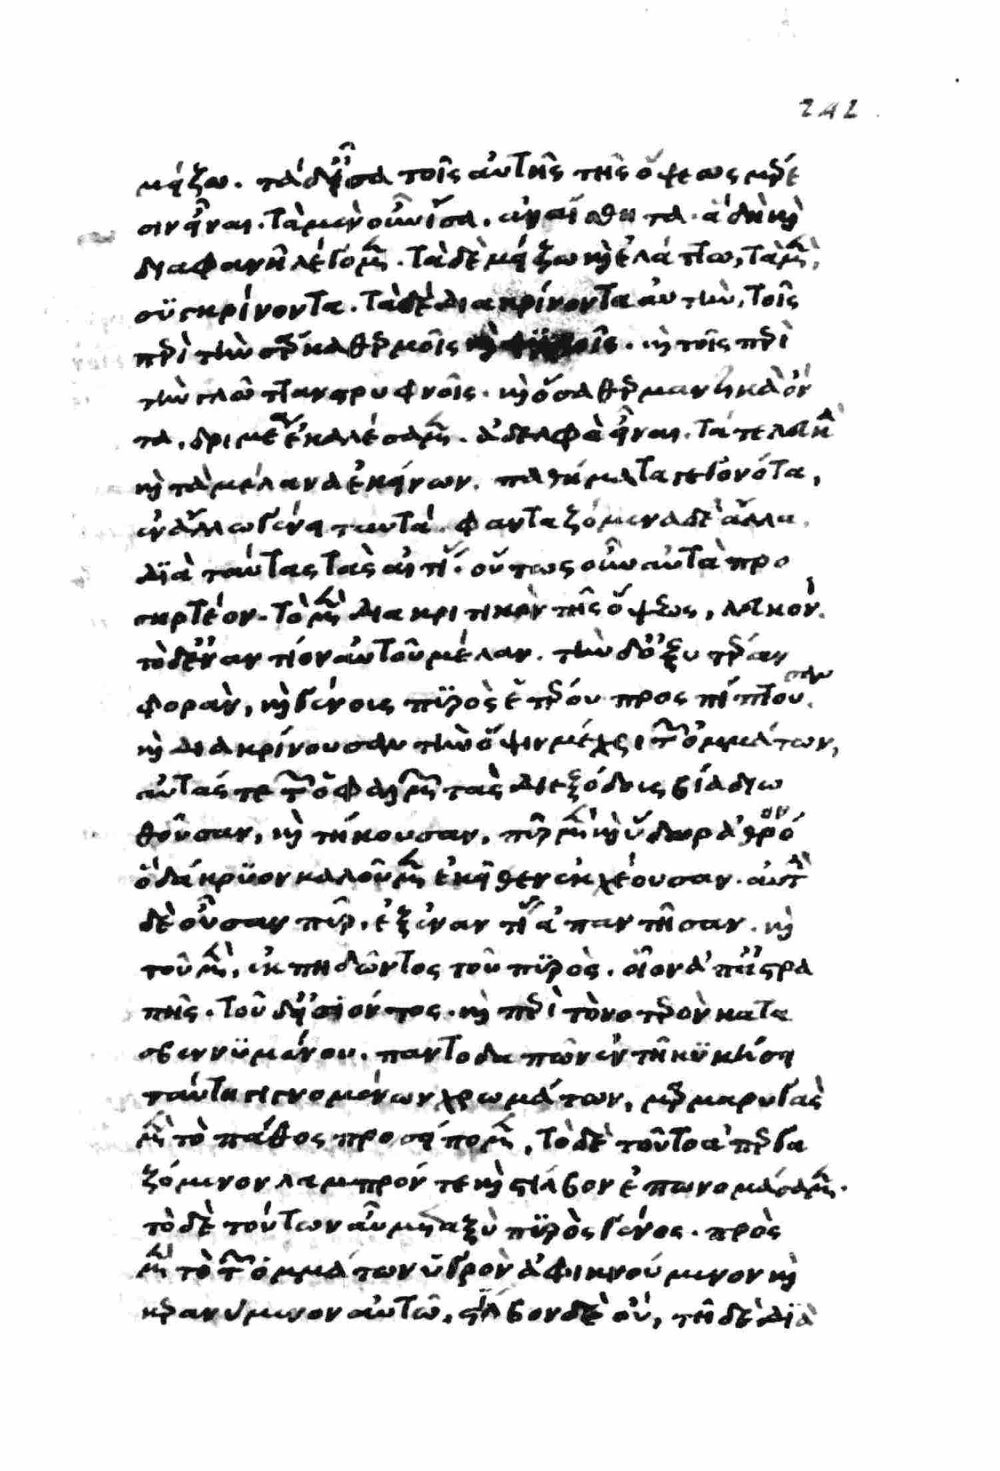 242
μείζω. τὰ δ' ἴσα τοῖς αὐτῆς τῆς ὄψεως μέρε
σιν εἶναι. τὰ μὲν οὖν ἴσα, ἀναίσθητα. ἃ δὴ καὶ
διαφανῆ λέγομεν. τὰ δὲ μείζω καὶ ἐλάττω, τὰ μὲν,
συγκρίνοντα. τὰ δὲ διακρίνοντα αὐτὴν, τοῖς
περὶ τὴν σάρκα θερμοῖς καὶ ψυχροῖς. καὶ τοῖς περὶ
τὴν γλῶτταν στρυφνοῖς. καὶ ὅσα θερμαντικὰ ὄν
τα, δριμέα ἐκαλέσαμεν. ἀδελφὰ εἶναι. τά τε λευκὰ
καὶ τὰ μέλανα ἐκείνων. παθήματα γεγονότα,
ἐν ἄλλω γένει ταυτά. φανταζόμενα δὲ ἄλλα
διὰ ταύτας τὰς αἰτίας. οὕτως οὖν αὐτὰ προ
σρητέον. τὸ μὲν διακριτικὸν τῆς ὄψεως, λευκόν.
τὸ δ' ἐναντίον αὐτοῦ μέλαν. τὴν δ' ὀξυτέραν
φορὰν, καὶ γένους πυρὸς ἑτέρου προσπίπτουσαν
καὶ διακρίνουσαν τὴν ὄψιν μέχρι τῶν ὀμμάτων,
αὐτάς τε τῶν ὀφθαλμῶν τὰς διεξόδους βία διω
θοῦσαν, καὶ τήκουσαν, πῦρ μὲν καὶ ὕδωρ ἀθρόον
ὃ δάκρυον καλοῦμεν ἐκεῖθεν ἐκχέουσαν. αὐτὴν
δὲ οὖσαν πῦρ, ἐξ ἐναντίας ἀπαντῆσαν. καὶ
τοῦ μὲν, ἐκπηδῶντος τοῦ πυρὸς. οἷον ἀπ' ἀστρα
πῆς. τοῦ δ' εἰσιόντος. καὶ περὶ τὸ νοτερὸν κατα
σβεννυμένου. παντοδαπῶν ἐν τῆ κυκήσει
ταύτη γιγνομένων χρωμάτων, μαρμαρυγὰς
μὲν τὸ πάθος προσείπομεν, τὸ δὲ τοῦτο ἀπεργα
ζόμενον λαμπρόν τε καὶ στίλβον ἐπωνομάσαμεν.
τὸ δὲ τούτων αὖ μεταξὺ πυρὸς γένος. πρὸς
μὲν τὸ τῶν ὀμμάτων ὑγρὸν ἀφικνούμενον καὶ
κεραννύμενον αὐτῶ, στίλβον δὲ οὔ, τῆ δὲ διὰ